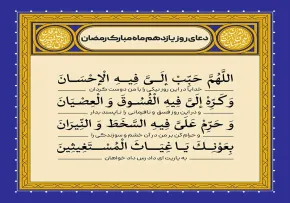 دعای روز یازدهم ماه مبارک رمضان
اللَّهُمَّ حَبِّبْ إِلَيَّ فِيهِ الْإِحْسَانَ
خدایا در این روز نیکی را با من دوست گردان
وَ كَرِّهْ إِلَيَّ فِيهِ الْفُسُوقَ وَ الْعِصْيَانَ
و در این روز فسق و نافرمانی را ناپسند بدار
وَ حَرِّمْ عَلَيَّ فِيهِ السَّخَطَ وَ النِّيرَانَ
و حرام کن بر من در آن خشم و سوزندگی را
بِعَوْنِكَ يَا غِيَاثَ الْمُسْتَغِيثِينَ
به یاریت ای داد رس داد خواهان